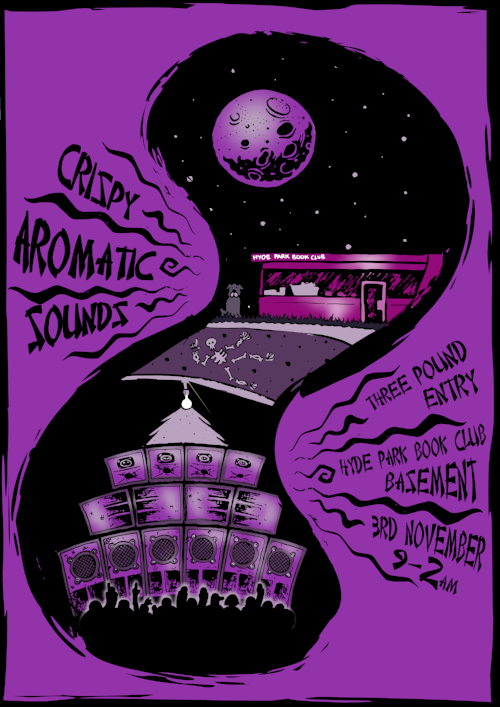 CRISPY
AROMATIC
SOUNDS
HYDE PARK BOOK CLUB
THREE POUND
ENTRY
HYDE PARK BOOK CLUB
BASEMENT
3RD NOVEMBER
9-2AM